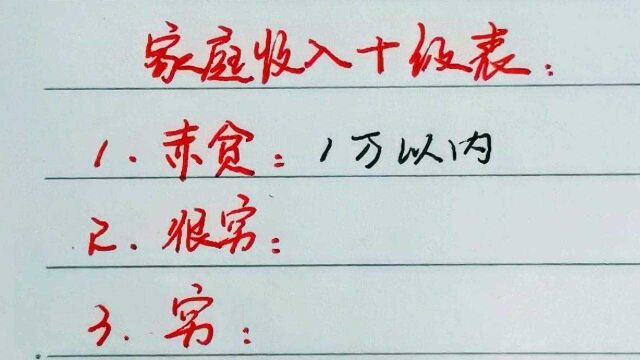 家庭收入十级表：
1.赤贫：1万以内
2.很穷：
3.穷：